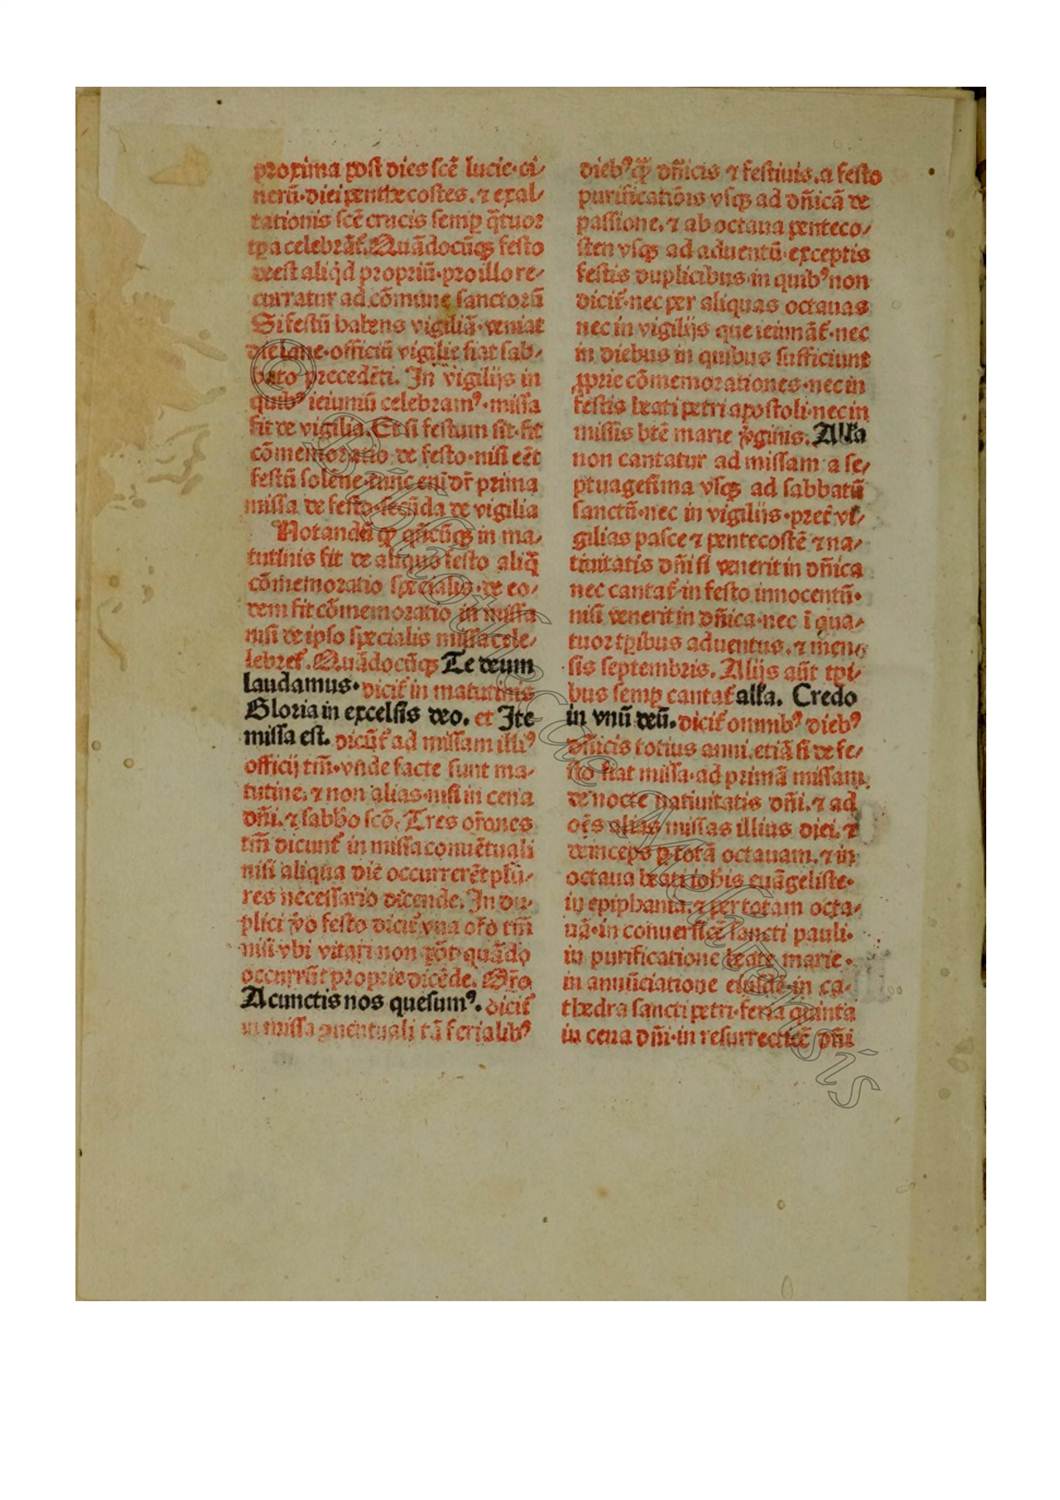 proxima post dies scē lucie·ci/
nerū·diei penthecostes.⁊ exal/
tationis scē crucis semꝑ q̄tuor
tꝑa celebrāt᷑.Quādocūqꝫ festo
deest aliqd̄ propriū·pro illo re/
curratur ad cōmune sanctorū
Si festū habens vigiliā·veniat
die lune·officiū vigilie fiat sab/
bato precedēti. In vigilijs in
quibꝰ ieiuniū celebramꝰ·missa
fit de vigilia.Et si festum sit·fit
cōmemoratio de festo·nisi eēt
festū solēne·tunc eni dr̄ prima
missa de festo·secūda de vigilia
Notandū ꝙ qn̄cūqꝫ in ma/
tutinis fit de aliquo festo aliq̄
cōmemoratio specialis·de eo/
dem fit cōmemoratio in missa
nisi de ipso specialis missa cele/
lebret᷑. Quādocūqꝫ Te deum
laudamus·dicit᷑ in matutinis
Gloria in excelsis deo. et Ite
missa est. dicūt᷑ ad missam illiꝰ
officij tm̄·vnde facte sunt ma/
tutine.⁊ non alias·nisi in cena
dn̄i.⁊ sabb̄o scō. Tres or̄ones
tm̄ dicunt᷑ in missa conuētuali
nisi aliqua die occurrerēt plu/
res necessario dicende. In du/
plici v̄o festo dicit᷑ vna or̄o tm̄
nisi vbi vitari non pōt quādo
occurrūt proprie dicēde. Or̄o
A cunctis nos quesumꝰ. dicit᷑
in missa ꝯuentuali tā ferialibꝰ
diebꝰ qꝫ̄ dn̄icis ⁊ festiuis.a festo
purificatiōis vsqꝫ ad dn̄icā de
passione.⁊ ab octaua penteco/
sten vsqꝫ ad aduentū·exceptis
festis duplicibus·in quibꝰ non
dicit᷑·nec per aliquas octauas
nec in vigilijs que ieiunāt᷑·nec
in diebus in quibus sufficiunt
ꝓprie cōmemorationes·nec in
festis beati petri apostoli·nec in
missis btē marie v̄ginis. Alla
non cantatur ad missam a se/
ptuagesima vsqꝫ ad sabbatū
sanctū·nec in vigilijs·pret᷑ vi/
gilias pasce ⁊ pentecostē ⁊ na/
tiuitatis dn̄i si venerit in dn̄ica
nec cantat᷑·in festo innocentū·
nisi venerit in dn̄ica·nec ī qua/
tuor tꝑibus aduentus.⁊ mens
sis septembris. Alijs aūt tꝑi/
bus semꝑ cantat᷑ alla. Credo
in vnū deū. dicit᷑ omnibꝰ diebꝰ
dn̄icis totius anni.etiā si de fe/
sto fiat missa·ad primā missam
de nocte natiuitatis dn̄i.⁊ ad
oēs alias missas illius diei.⁊
deinceps ꝑ totā octauam.⁊ in
octaua beati iohis euāgeliste·
in epiphania.⁊ per totam octa/
uā·in conuersiōe sancti pauli·
in purificatione beate marie·
in annūciatione eiusdē·in ca/
thedra sancti petri·feria quinta
in cena dn̄i·in resurrectiōe dn̄i
© Bibliothecae Alphas